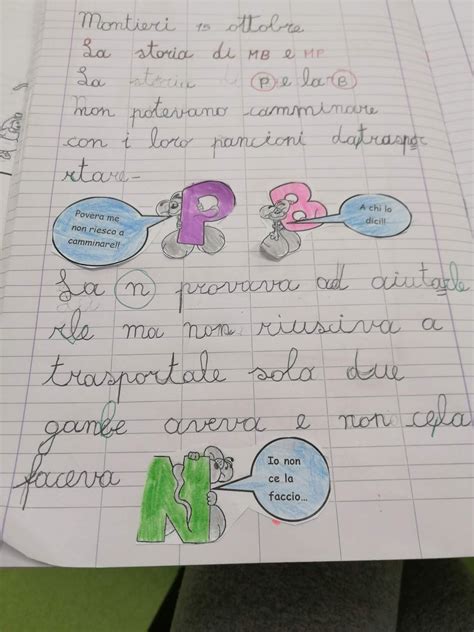 Montieri 15 ottobre
La storia di MB e MP
La storia di P e la B
non potevano camminare
con i loro pancioni datraspor
rtare-
Povera me
non riesco a
camminare!!
A chi lo
dici!!
P B
La n provava ad aiutarle
rle ma non riusciva a
trasportale solo due
gambe aveva e non cela
faceva
N
Io non
ce la
faccio...